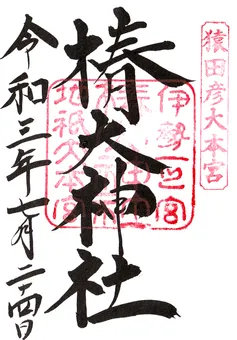 猿田彦大本宮
伊勢一之宮
地祇大本宮
椿大神社
令和三年七月二十四日